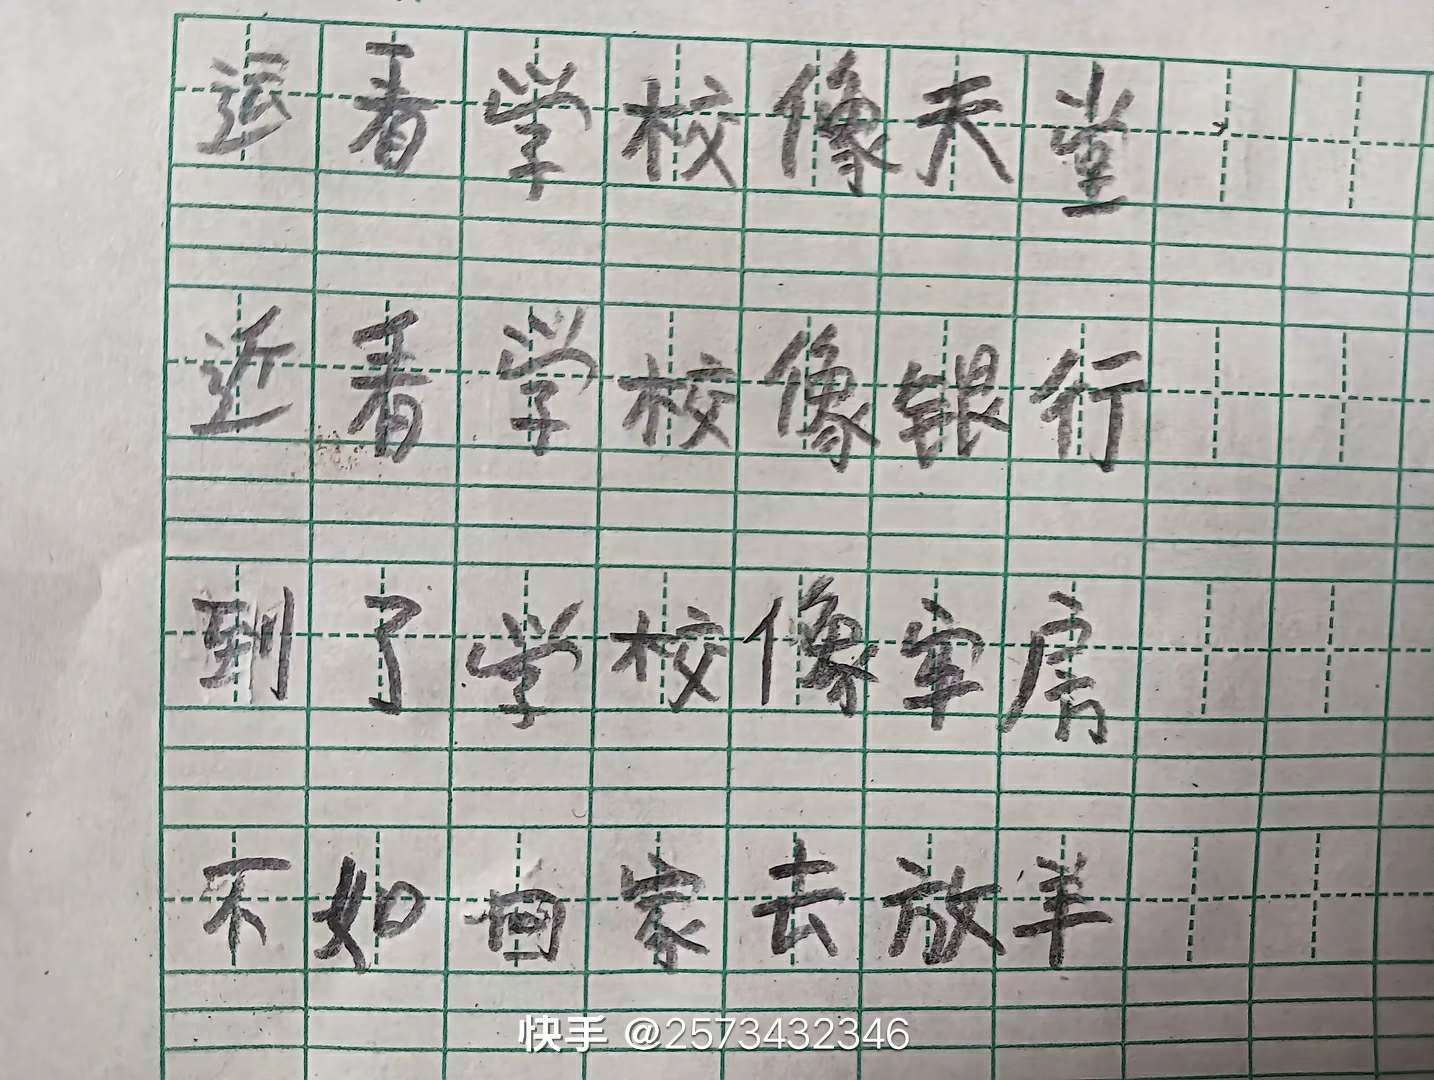 运看学校像天堂
近看学校像银行
到了学校像牢房
不如回家去放羊
快手 @2573432346